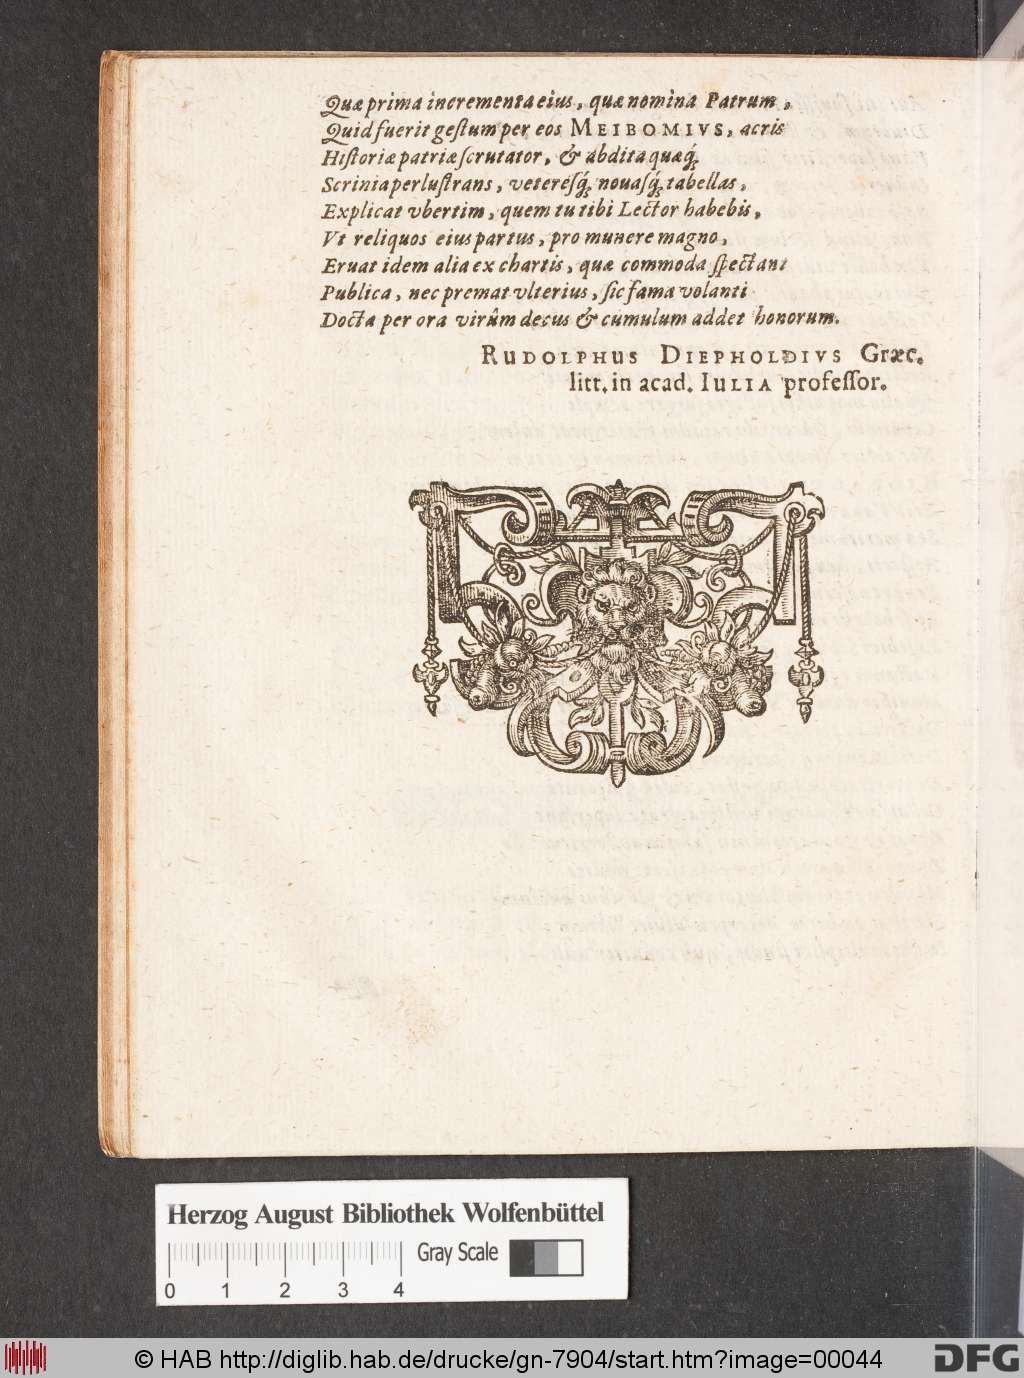 Quæ prima incrementa eius, quæ nomina Patrum,
Quid fuerit gestum per eos MEIBOMIVS, acris
Historiæ patriæ scrutator, & abdita quæq́;
Scrinia perlustrans, veteresq́; nouasq́; tabellas,
Explicat vbertim, quem tu tibi Lector habebis,
Vt reliquos eius partus, pro munere magno,
Eruat idem alia ex chartis, quæ commoda spectant
Publica, nec premat vlterius, sic fama volanti
Docta per ora virûm decus & cumulum addet honorum.
RUDOLPHUS DIEPHOLDIVS Græc.
litt. in acad. IULIA professor.
Herzog August Bibliothek Wolfenbüttel
Gray Scale
0 1 2 3 4
© HAB http://diglib.hab.de/drucke/gn-7904/start.htm?image=00044
DFG